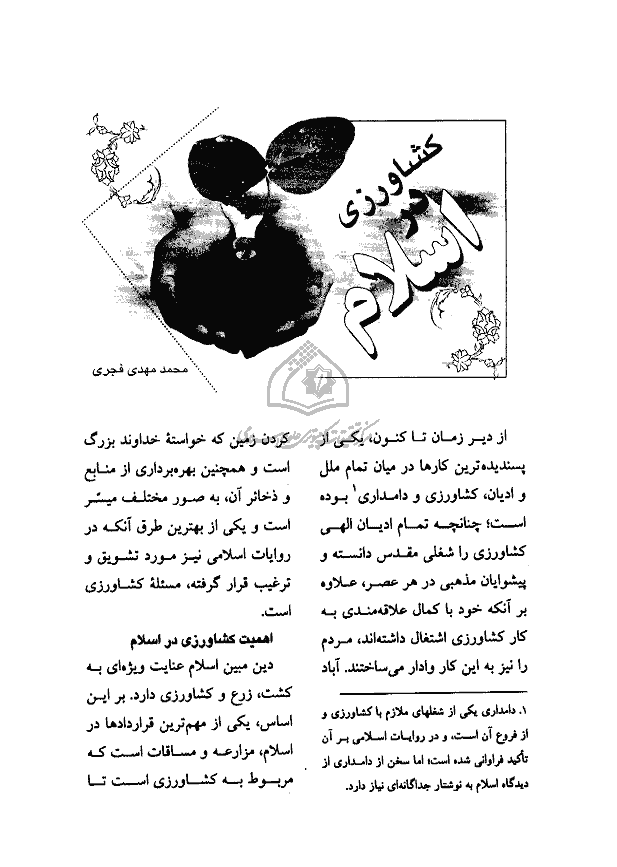 کشاورزی
در
اسلام
محمد مهدی فجری
از دیر زمان تا کنون، یکی از
پسندیده‌ترین کارها در میان تمام ملل
و ادیان، کشاورزی و دامداری۱ بوده
است؛ چنانچه تمام ادیان الهی
کشاورزی را شغلی مقدس دانسته و
پیشوایان مذهبی در هر عصر، علاوه
بر آنکه خود با کمال علاقه‌مندی به
کار کشاورزی اشتغال داشته‌اند، مردم
را نیز به این کار وادار می‌ساختند. آباد
۱. دامداری یکی از شغلهای ملازم با کشاورزی و
از فروع آن است، و در روایات اسلامی بر آن
تأکید فراوانی شده است؛ اما سخن از دامداری از
دیدگاه اسلام به نوشتار جداگانه‌ای نیاز دارد.
کردن زمین که خواستهٔ خداوند بزرگ
است و همچنین بهره‌برداری از منابع
و ذخائر آن، به صور مختلف میسّر
است و یکی از بهترین طرق آنکه در
روایات اسلامی نیز مورد تشویق و
ترغیب قرار گرفته، مسئلهٔ کشاورزی
است.
اهمیت کشاورزی در اسلام
دین مبین اسلام عنایت ویژه‌ای به
کشت، زرع و کشاورزی دارد. بر این
اساس، یکی از مهم‌ترین قراردادها در
اسلام، مزارعه و مساقات است که
مربوط به کشاورزی است تا